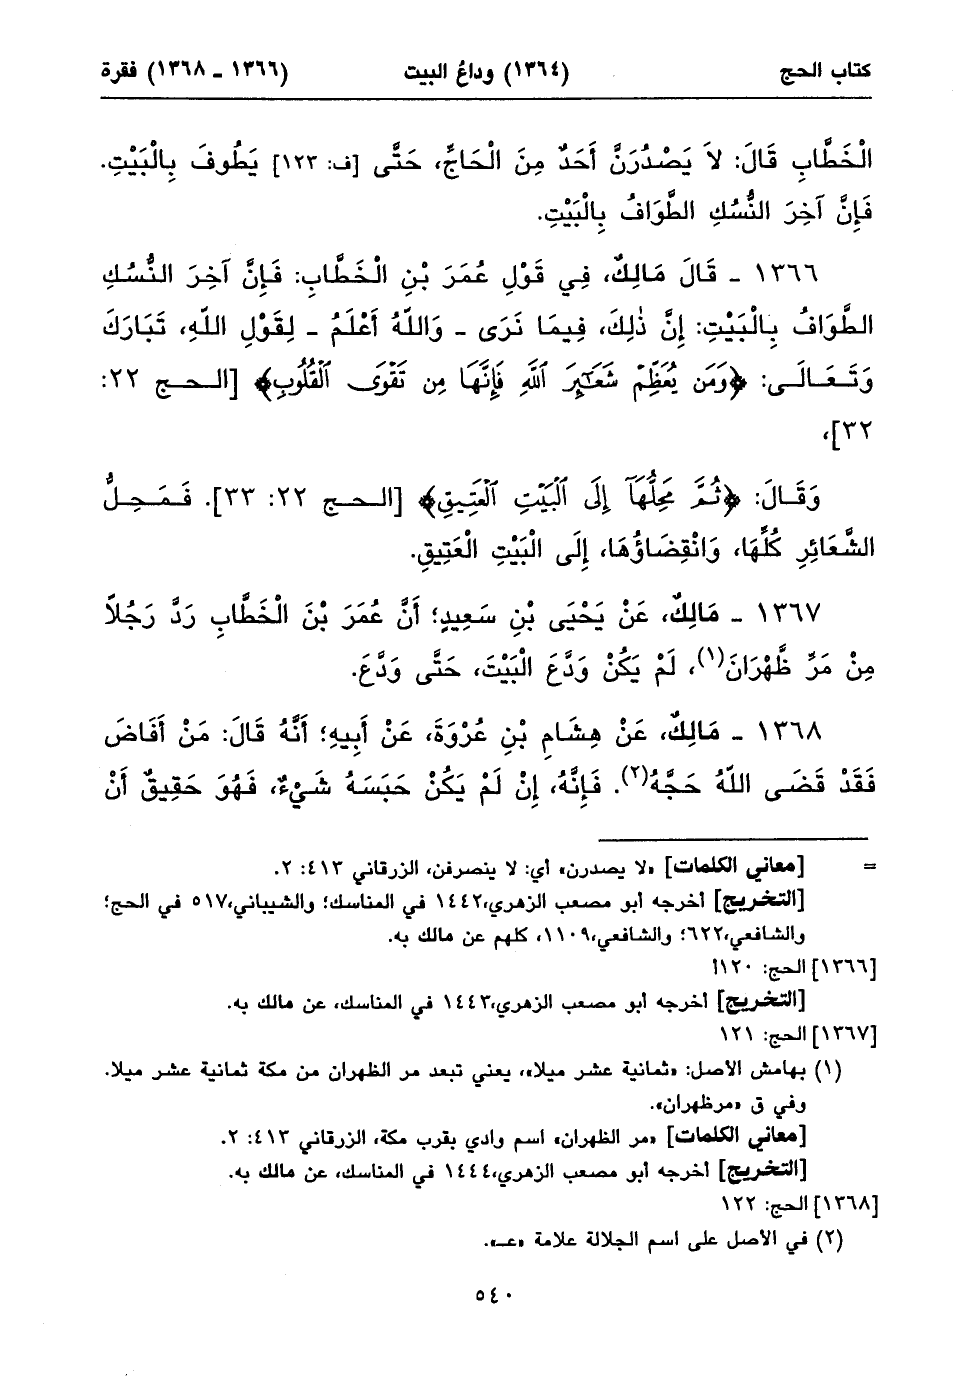 كتاب الحج (١٣٦٤) وداعُ البيت (١٣٦٦ ـ ١٣٦٨) فقرة
الْخَطَّابِ قَالَ: لاَ يَصْدُرَنَّ أَحَدٌ مِنَ الْحَاجِّ، حَتَّى [ف: ١٢٣] يَطُوفَ بِالْبَيْتِ.
فَإِنَّ آخِرَ النُّسُكِ الطَّوَافُ بِالْبَيْتِ.
١٣٦٦ ـ قَالَ مَالِكٌ، فِي قَوْلِ عُمَرَ بْنِ الْخَطَّابِ: فَإِنَّ آخِرَ النُّسُكِ
الطَّوَافُ بِالْبَيْتِ: إِنَّ ذٰلِكَ، فِيمَا نَرَى ـ وَاللَّهُ أَعْلَمُ ـ لِقَوْلِ اللَّهِ، تَبَارَكَ
وَتَعَالَى: ﴿وَمَن يُعَظِّمْ شَعَـٰٓئِرَ ٱللَّهِ فَإِنَّهَا مِن تَقْوَى ٱلْقُلُوبِ﴾ [الحج ٢٢:
٣٢]،
وَقَالَ: ﴿ثُمَّ مَحِلُّهَآ إِلَى ٱلْبَيْتِ ٱلْعَتِيقِ﴾ [الحج ٢٢: ٣٣]. فَمَحِلُّ
الشَّعَائِرِ كُلِّهَا، وَانْقِضَاؤُهَا، إِلَى الْبَيْتِ الْعَتِيقِ.
١٣٦٧ ـ مَالِكٌ، عَنْ يَحْيَى بْنِ سَعِيدٍ؛ أَنَّ عُمَرَ بْنَ الْخَطَّابِ رَدَّ رَجُلاً
مِنْ مَرِّ ظَّهْرَانَ(١)، لَمْ يَكُنْ وَدَّعَ الْبَيْتَ، حَتَّى وَدَّعَ.
١٣٦٨ ـ مَالِكٌ، عَنْ هِشَامِ بْنِ عُرْوَةَ، عَنْ أَبِيهِ؛ أَنَّهُ قَالَ: مَنْ أَفَاضَ
فَقَدْ قَضَى اللَّهُ حَجَّهُ(٢). فَإِنَّهُ، إِنْ لَمْ يَكُنْ حَبَسَهُ شَيْءٌ، فَهُوَ حَقِيقٌ أَنْ
= [معاني الكلمات] «لا يصدرن» أي: لا ينصرفن، الزرقاني ٤١٣: ٢.
[التخريج] أخرجه أبو مصعب الزهري،١٤٤٢ في المناسك؛ والشيباني،٥١٧ في الحج؛
والشافعي،٦٢٢؛ والشافعي،١١٠٩، كلهم عن مالك به.
[١٣٦٦] الحج: ١٢٠أ
[التخريج] أخرجه أبو مصعب الزهري،١٤٤٣ في المناسك، عن مالك به.
[١٣٦٧] الحج: ١٢١
(١) بهامش الأصل: «ثمانية عشر ميلا»، يعني تبعد مر الظهران من مكة ثمانية عشر ميلا.
وفي ق «مرظهران».
[معاني الكلمات] «مر الظهران» اسم وادي بقرب مكة، الزرقاني ٤١٣: ٢.
[التخريج] أخرجه أبو مصعب الزهري،١٤٤٤ في المناسك، عن مالك به.
[١٣٦٨] الحج: ١٢٢
(٢) في الأصل على اسم الجلالة علامة «عـ».
٥٤٠